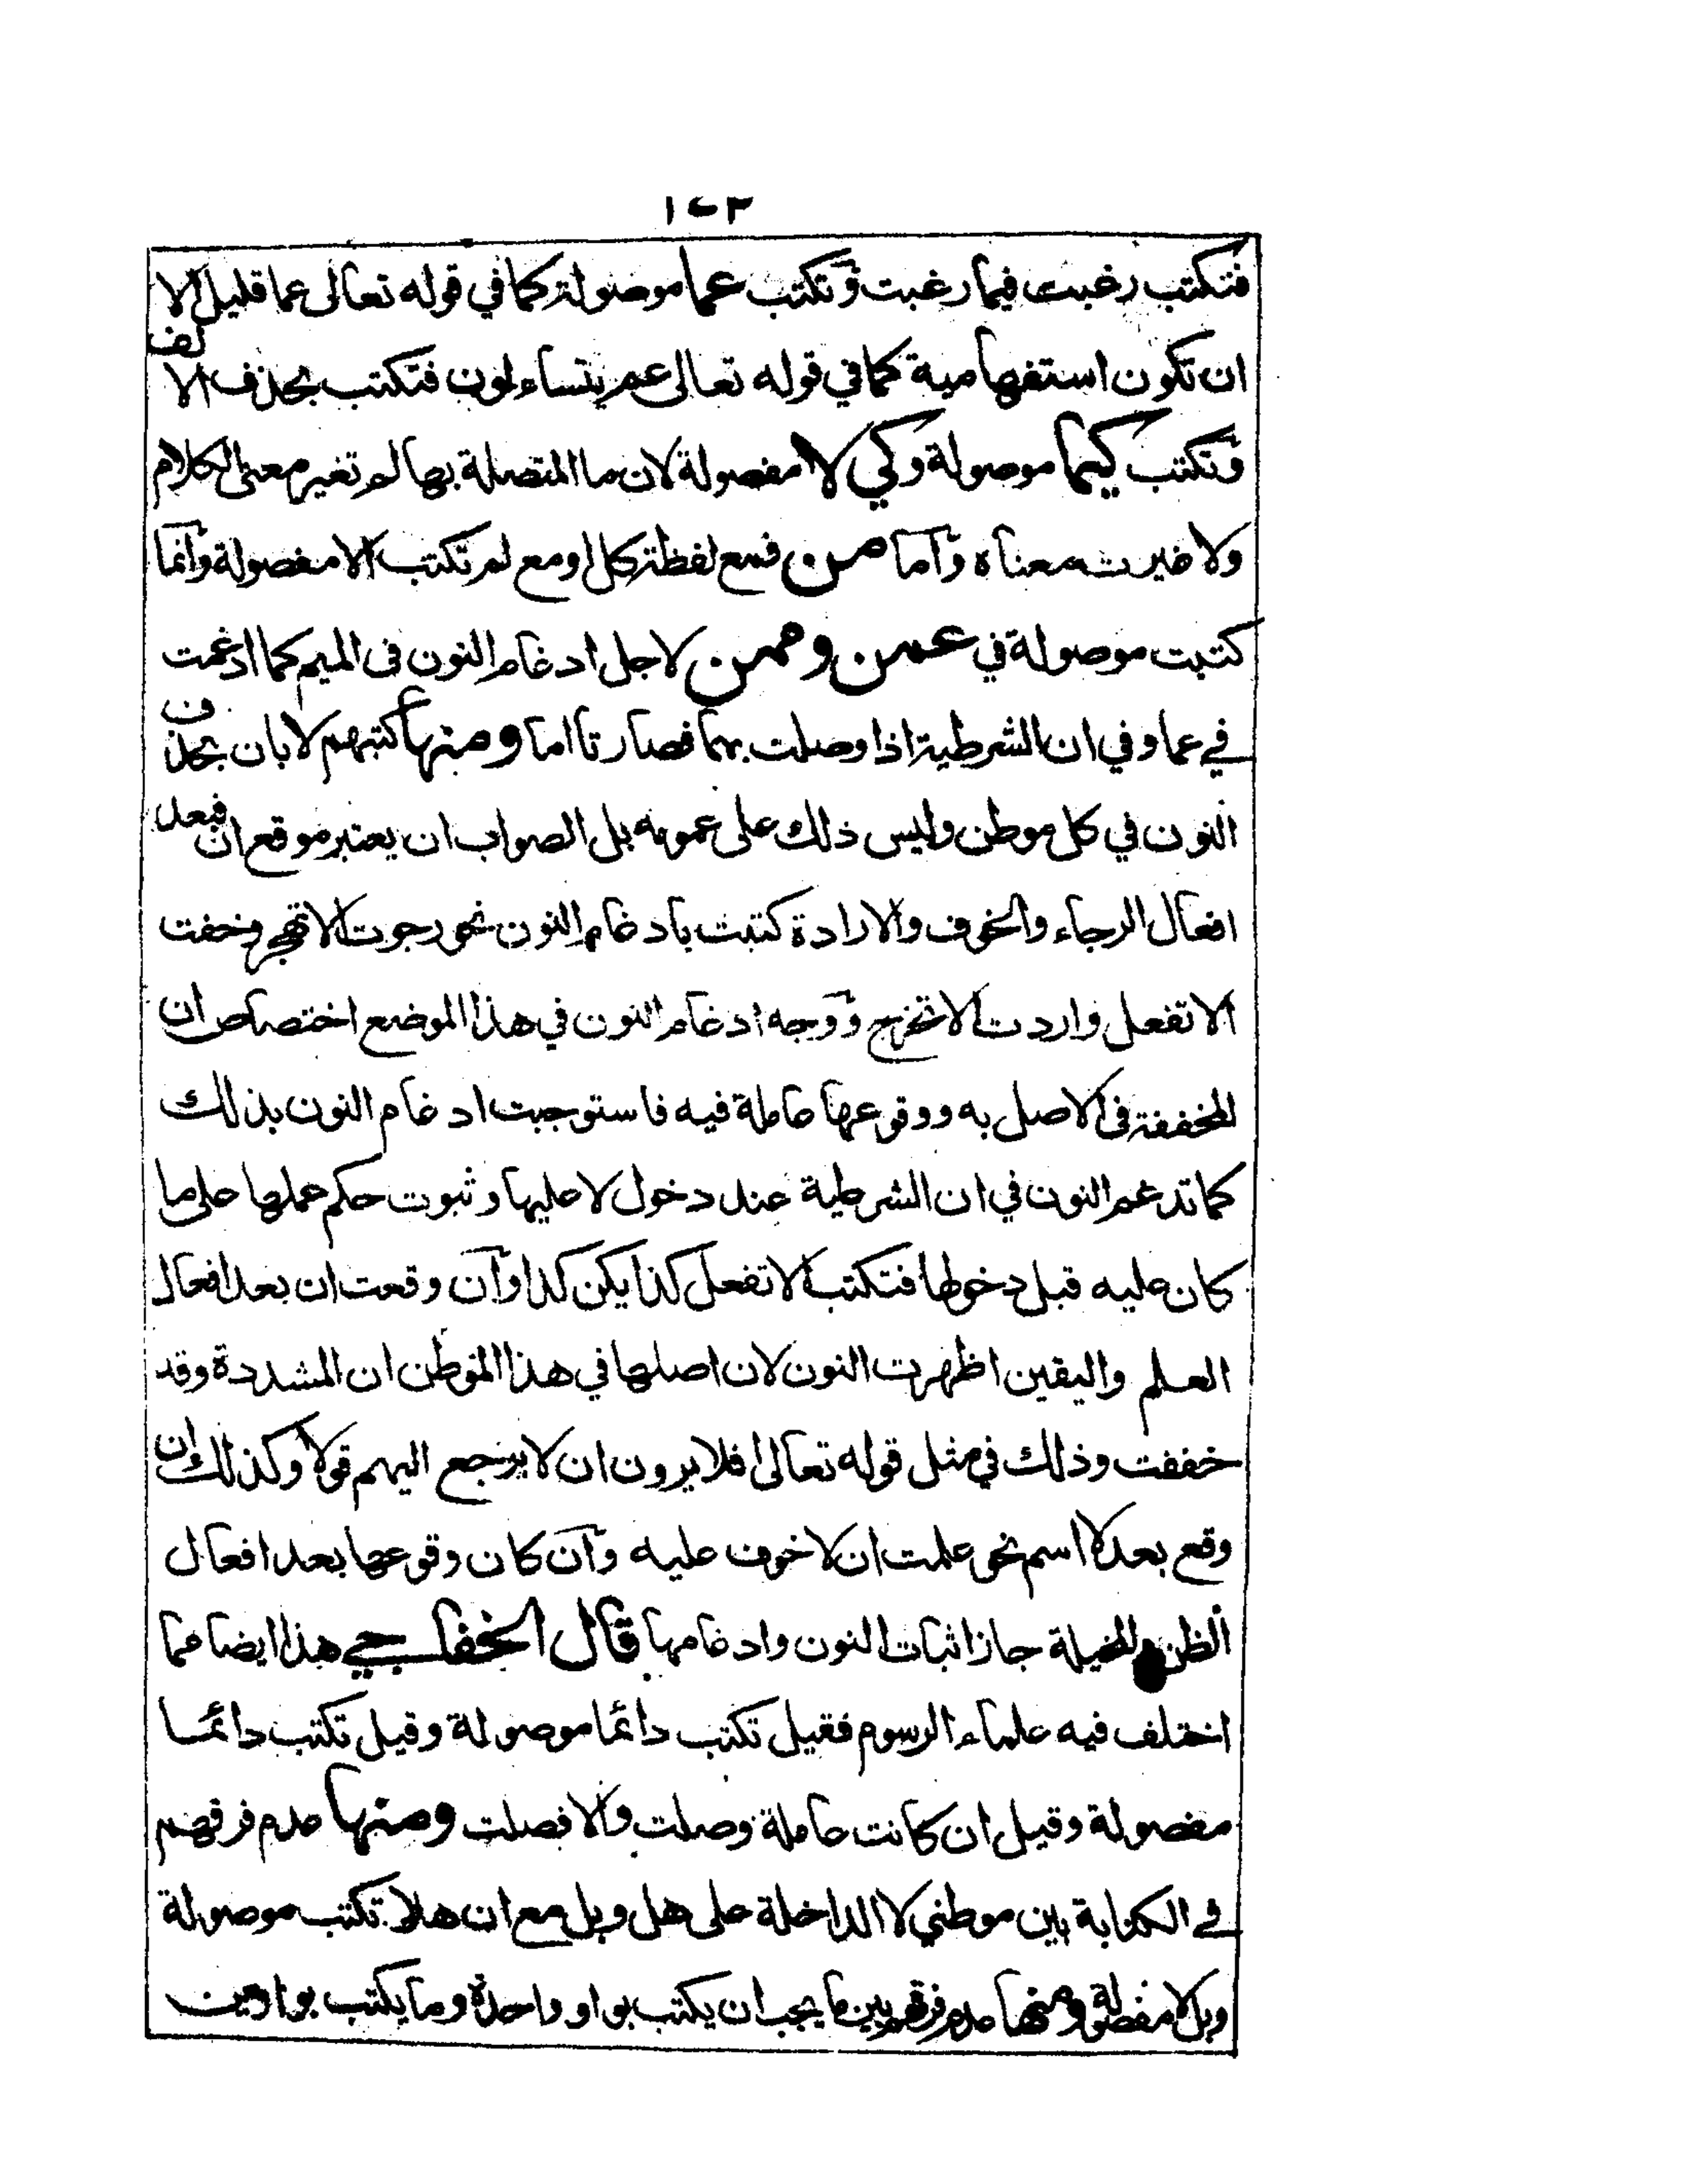 ١٤٣
فتكتب رغبت فيما رغبت وتكتب عما موصولة كما في قوله تعالى عما قليل الا
ان تكون استفهامية كما في قوله تعالى عم يتساءلون فتكتب بحذف الالف
وتكتب كيما موصولة وكي لا مفصولة لان ما المتصلة بها لم تغير معنى الكلام
ولا غيرت معناه واما من فمع لفظة كل او مع لم تكتب الا مفصولة وانما
كتبت موصولة في عمن وممن لاجل ادغام النون في الميم كما ادغمت
في عما وفي ان الشرطية اذا وصلت بما فصارتا اما ومنها كتبهم لا بان بحذف
النون في كل موطن وليس ذلك على عمومه بل الصواب ان يعتبر موقع ان فبعد
افعال الرجاء والخوف والارادة كتبت بادغام النون نحو رجوت الا تهجر وخفت
الا تفعل واردت الا تخرج ووجه ادغام النون في هذا الموضع اختصاص ان
المخففة في الاصل به ووقوعها عاملة فيه فاستوجبت ادغام النون بذلك
كما تدغم النون في ان الشرطية عند دخول لا عليها وثبوت حكم عملها على ما
كان عليه قبل دخولها فتكتب الا تفعل كذا يكن كذا وان وقعت ان بعد افعال
العلم واليقين اظهرت النون لان اصلها في هذا الموطن ان المشددة وقد
خففت وذلك في مثل قوله تعالى افلا يرون ان لا يرجع اليهم قولا وكذلك ان
وقع بعد لا اسم نحو علمت ان لا خوف عليه وان كان وقوعها بعد افعال
الظن والمخيلة جاز اثبات النون وادغامها قال الخفاجي هذا ايضا مما
اختلف فيه علماء الرسوم فقيل تكتب دائما موصولة وقيل تكتب دائما
مفصولة وقيل ان كانت عاملة وصلت والا فصلت ومنها عدم فرقهم
في الكتابة بين موطني لا الداخلة على هل وبل مع ان هلا تكتب موصولة
وبل لا مفصولة ومنها عدم فرقهم بين ما يجب ان يكتب بواو واحدة وما يكتب بواوين